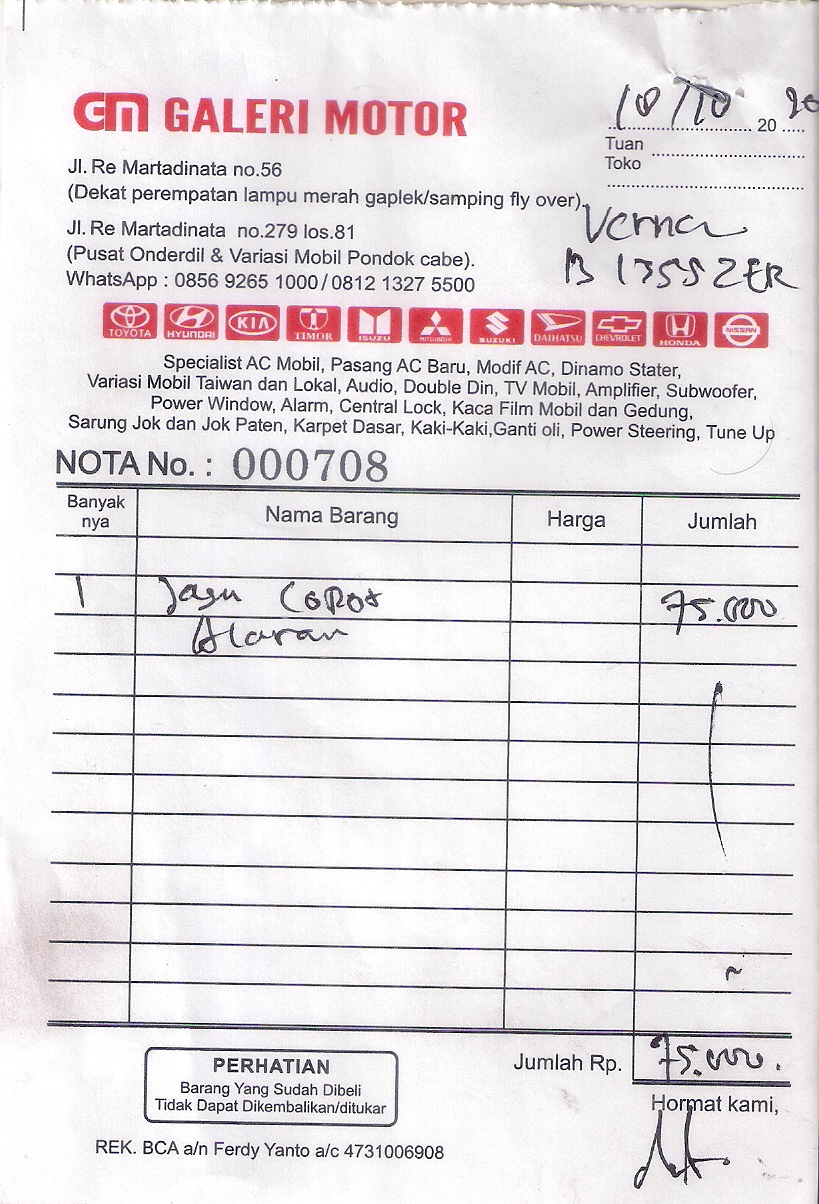 GM GALERI MOTOR
10/10 20 20
Tuan
Toko
Jl. Re Martadinata no.56
(Dekat perempatan lampu merah gaplek/samping fly over).
Verna
Jl. Re Martadinata no.279 los.81
(Pusat Onderdil & Variasi Mobil Pondok cabe).
B 1355 ZER
WhatsApp : 0856 9265 1000/0812 1327 5500
TOYOTA HYUNDAI KIA TIMOR ISUZU MITSUBISHI SUZUKI DAIHATSU CHEVROLET HONDA NISSAN
Specialist AC Mobil, Pasang AC Baru, Modif AC, Dinamo Stater,
Variasi Mobil Taiwan dan Lokal, Audio, Double Din, TV Mobil, Amplifier, Subwoofer,
Power Window, Alarm, Central Lock, Kaca Film Mobil dan Gedung,
Sarung Jok dan Jok Paten, Karpet Dasar, Kaki-Kaki,Ganti oli, Power Steering, Tune Up
NOTA No. : 000708
Banyak nya Nama Barang Harga Jumlah
1 75.000
Jumlah Rp. 75.000.
PERHATIAN
Barang Yang Sudah Dibeli
Tidak Dapat Dikembalikan/ditukar
Hormat kami,
REK. BCA a/n Ferdy Yanto a/c 4731006908